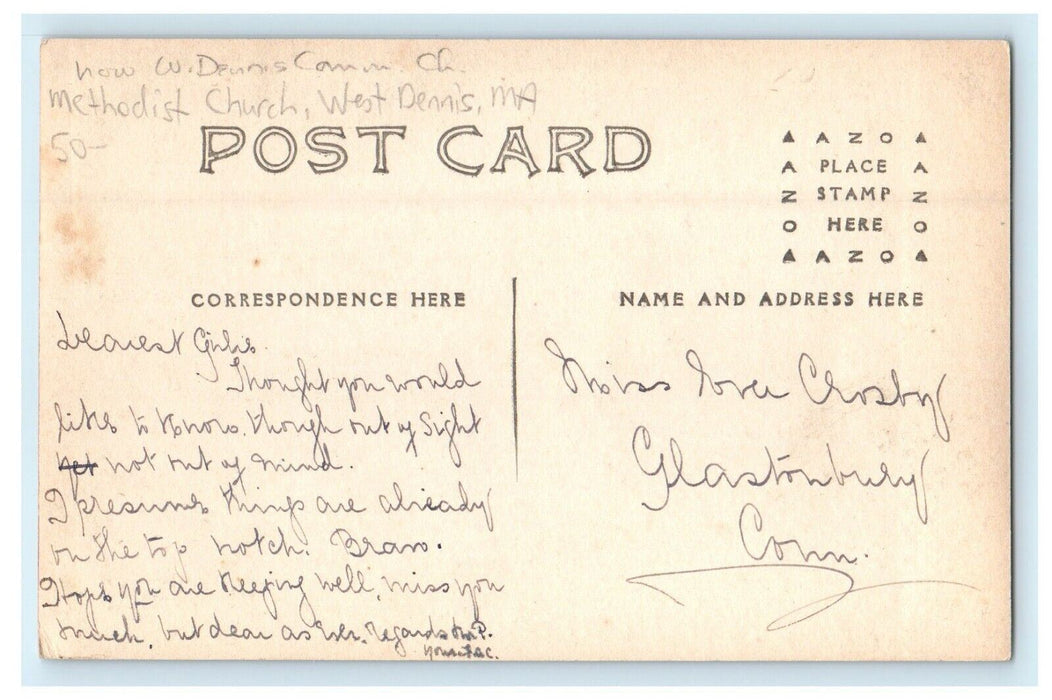 now W. Dennis Comm. Ch.
Methodist Church, West Dennis, MA
50-
POST CARD
AAZOA
A PLACE A
Z STAMP Z
O HERE O
AAZOA
CORRESPONDENCE HERE
NAME AND ADDRESS HERE
Dearest Girlie.
Thought you would
like to know, though out of sight
yet not out of mind.
I presume things are already
on the top notch. Bravo.
Hope you are keeping well, miss you
much, but dear as ever. Regards to P.
Miss Crosby
Glastonbury
Conn.